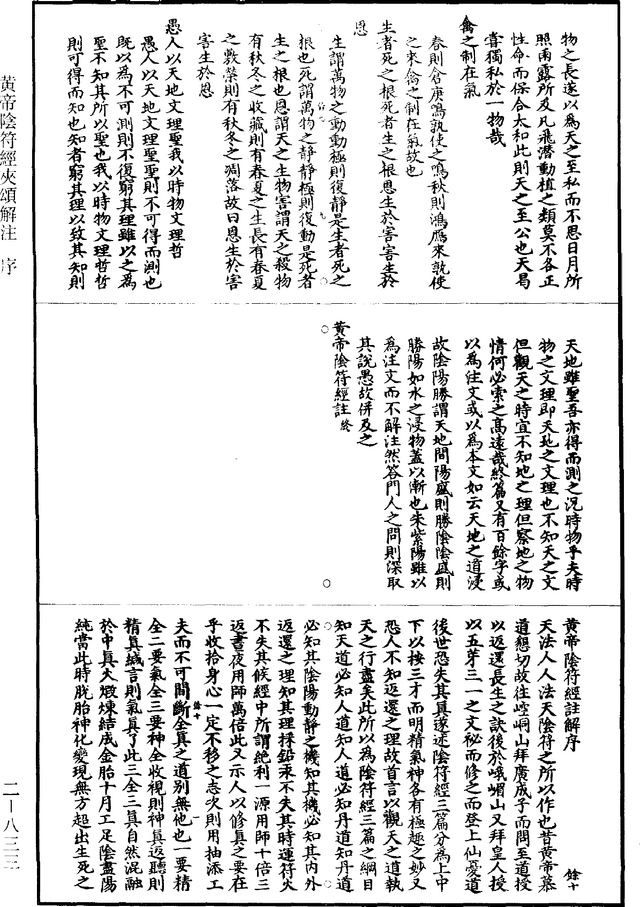 物之長遂以為天之至私而不思日月所
照雨露所及凡飛潛動植之類莫不各正
性命而保合太和此則天之至公也天曷
嘗獨私於一物哉
禽之制在氣
春則倉庚鳴孰使之鳴秋則鴻鴈來孰使
之來禽之制在氣故也
生者死之根死者生之根恩生於害害生於
恩
生謂萬物之動動極則復靜是生者死之
根也死謂萬物之靜靜極則復動是死者
生之根也恩謂天之生物害謂天之殺物
有秋冬之收藏則有春夏之生長有春夏
之敷榮則有秋冬之凋落故曰恩生於害
害生於恩
愚人以天地文理聖我以時物文理哲
愚人以天地文理聖聖則不可得而測也
既以為不可測則不復窮其理雖以之為
聖不知其所以聖也我以時物文理哲哲
則可得而知也知者窮其理以致其知則
天地雖聖吾亦得而測之況時物乎夫時
物之文理即天地之文理也不知天之文
但觀天之時宜不知地之理但察地之物
情何必索之高遠哉終篇又有百餘字或
以為注文或以為本文如云天地之道浸
故陰陽勝謂天地間陽盛則勝陰陰盛則
勝陽如水之浸物蓋以漸也朱紫陽雖以
為注文而不解注然答門人之問則深取
其說愚故併及之
黃帝陰符經註終
黃帝陰符經註解序 餘十
天法人人法天陰符之所以作也昔黃帝慕
道懇切故往崆峒山拜廣成子而問至道授
以返還長生之訣後於峨嵋山又拜皇人授
以五芽三一之文祕而修之而登上仙憂道
後世恐失其真遂述陰符經三篇分為上中
下以按三才而明精氣神各有極趣之妙又
恐人不知返還之理故首言以觀天之道執
天之行盡矣此所以為陰符經三篇之綱目
知天道必知人道知人道必知丹道知丹道
必知其陰陽動靜之機知其機必知其內外
返還之理知其理採鉛汞不失其時運符火
不失其候經中所謂絕利一源用師十倍三
返晝夜用師萬倍此又示人以修真之要在
乎收拾身心一定不移之志次則用抽添工
夫而不可間斷全真之道別無他也一要精
全二要氣全三要神全收視則神真返聽則
精真緘言則氣真了此三全三真自然混融
於中真火煅煉結成金胎十月工足陰盡陽
純當此時脫胎神化變現無方超出生死之
黃帝陰符經夾頌解注 序
二—八三三